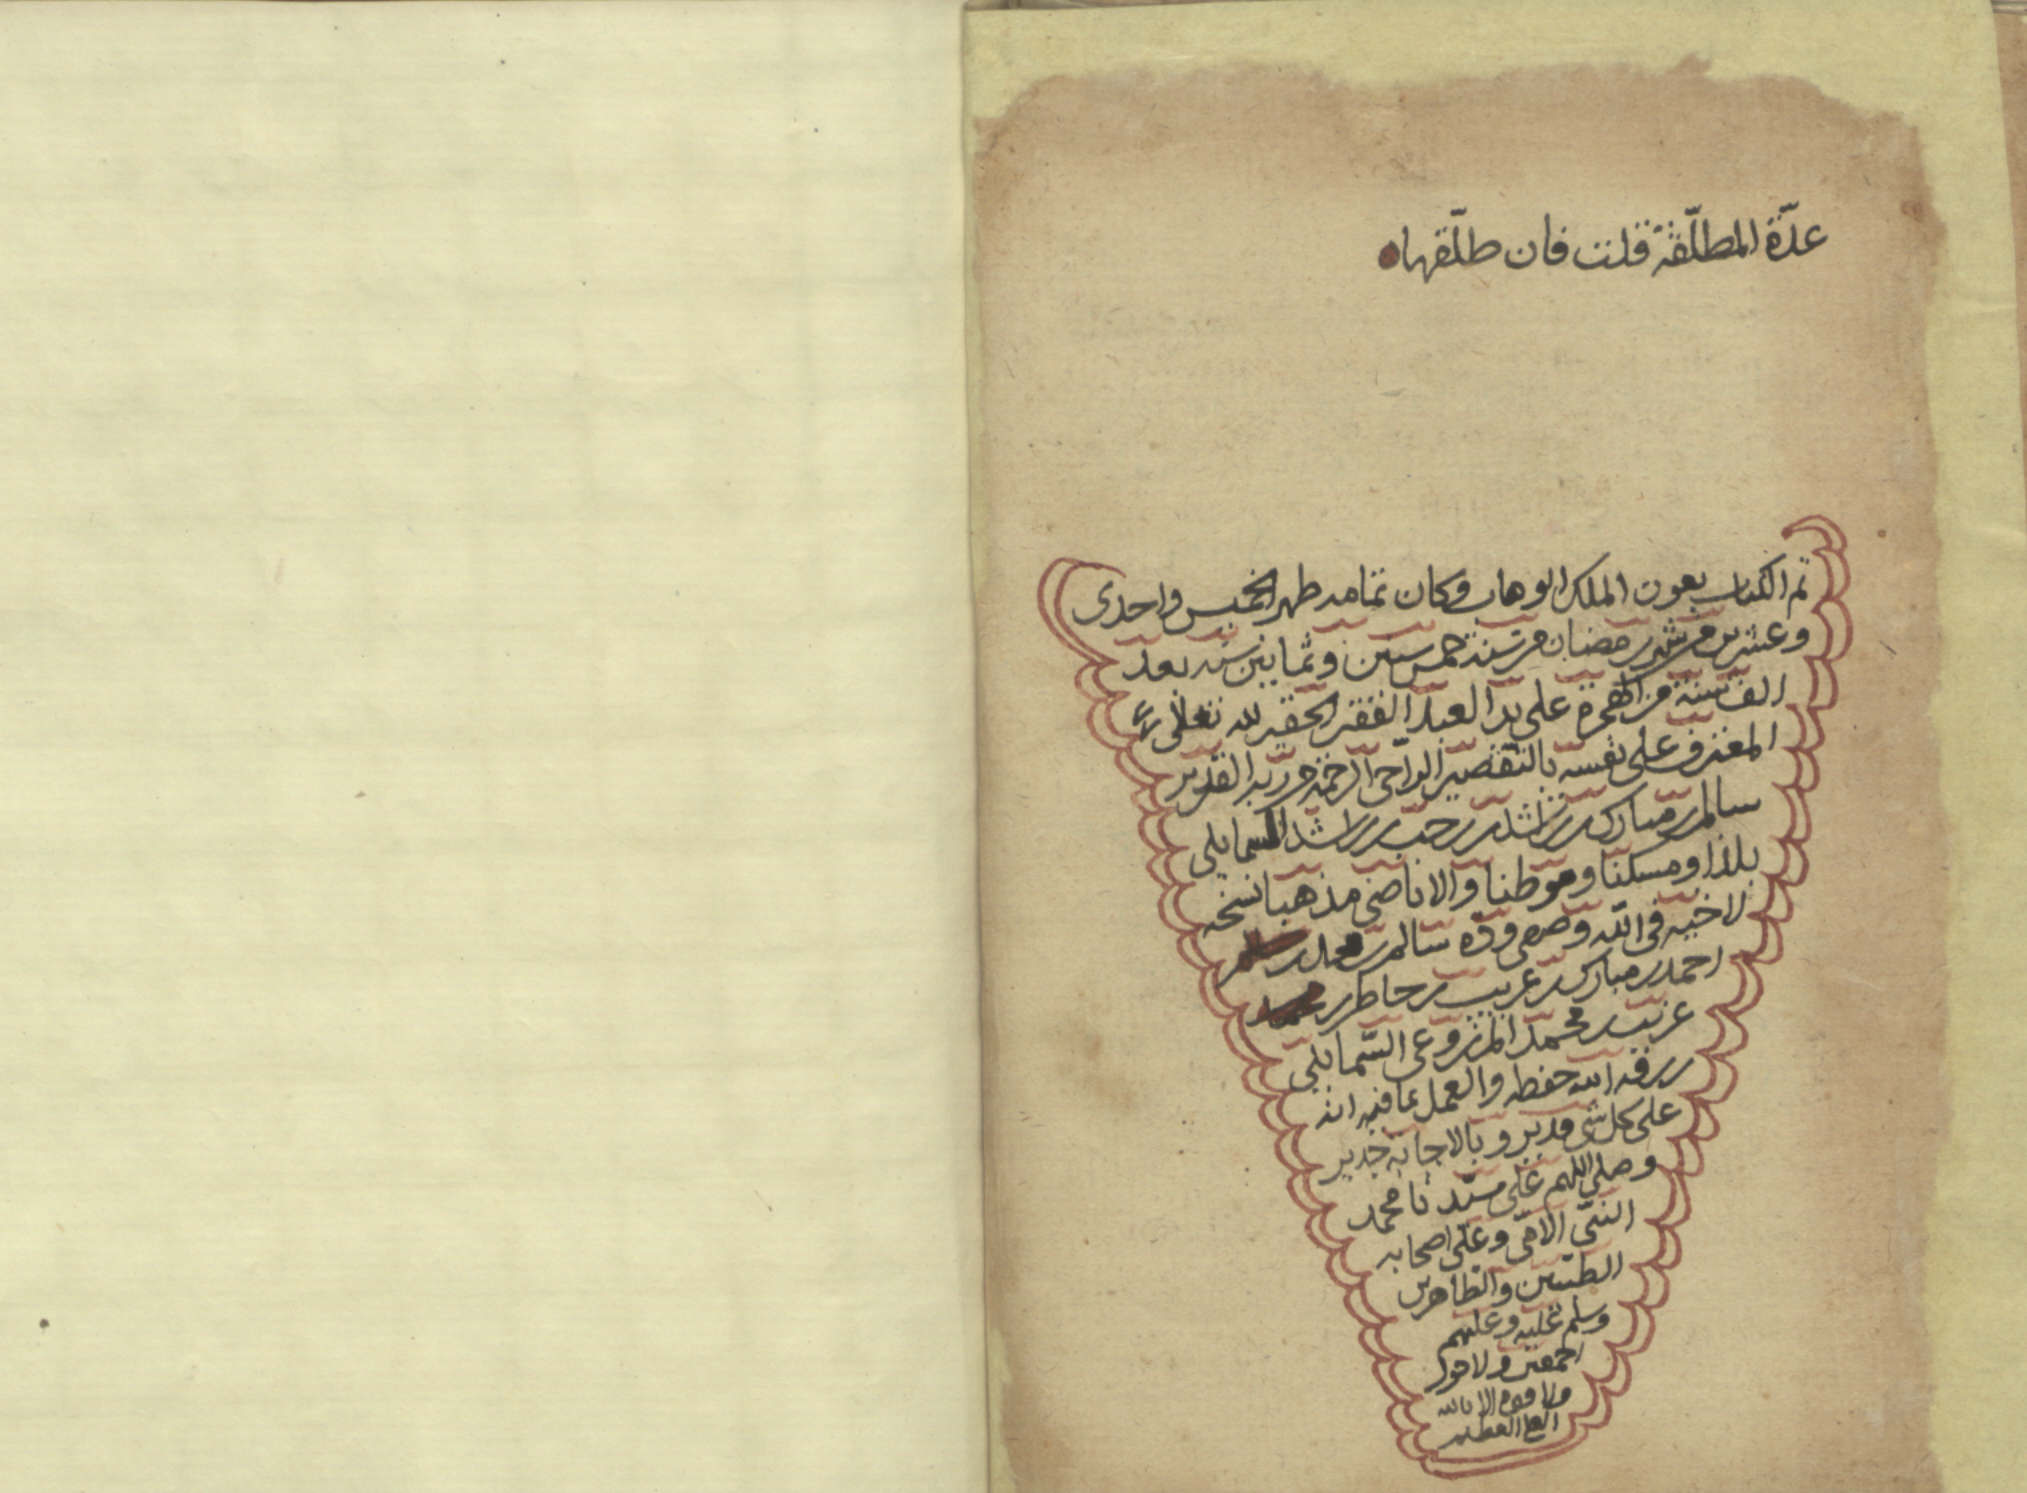 عدّة المطلّقة قلت فان طلّقها
تم الكتاب بعون الملك الوهاب وكان تمامه ظهر الخميس واحدى
وعشرين من شهر رمضان من سنة خمس سنين وثمانين سنه بعد
الف سنة من الهجرة على يد العبد الفقير الحقير لله تعالى
المعترف على نفسه بالتقصير الراجى الرحمة من ربه القدير
سالم بن مبارك بن راشد بن حبيب بن راشد السمايلي
بلدا ومسكنا وموطنا والاباضي مذهبا نسخه
لاخيه في الله وصفي وده سالم بن محمد بن
احمد بن مبارك بن غريب بن خاطر بن
غريب بن محمد المزروعي السّمايلي
رزقه الله حفظه والعمل بما فيه انه
على كل شي قدير وبالاجابة جدير
وصلى اللهم على سيّدنا محمد
النبيّ الامّي وعلى اصحابه
الطيبين والطاهرين
وسلم عليه وعليهم
اجمعين ولا حول
ولا قوة الا بالله
العلي العظيم